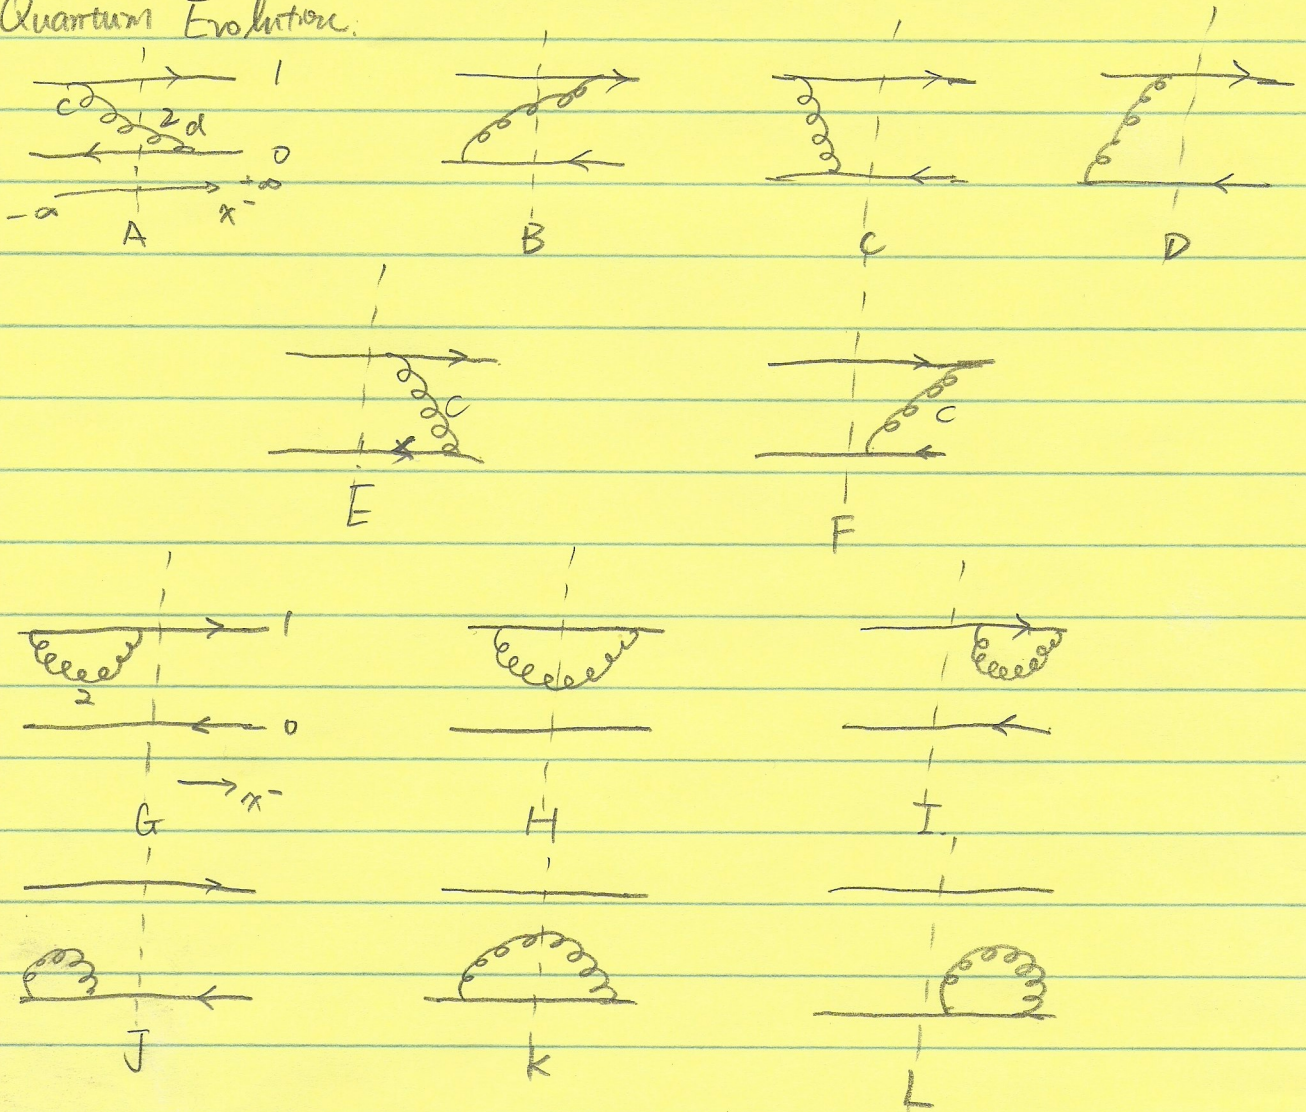 Quantum Evolution.
1
c 2 d
0
-∞ x⁻ +∞
A B C D
c c
E F
1
2
0
x⁻
G H I.
J K L